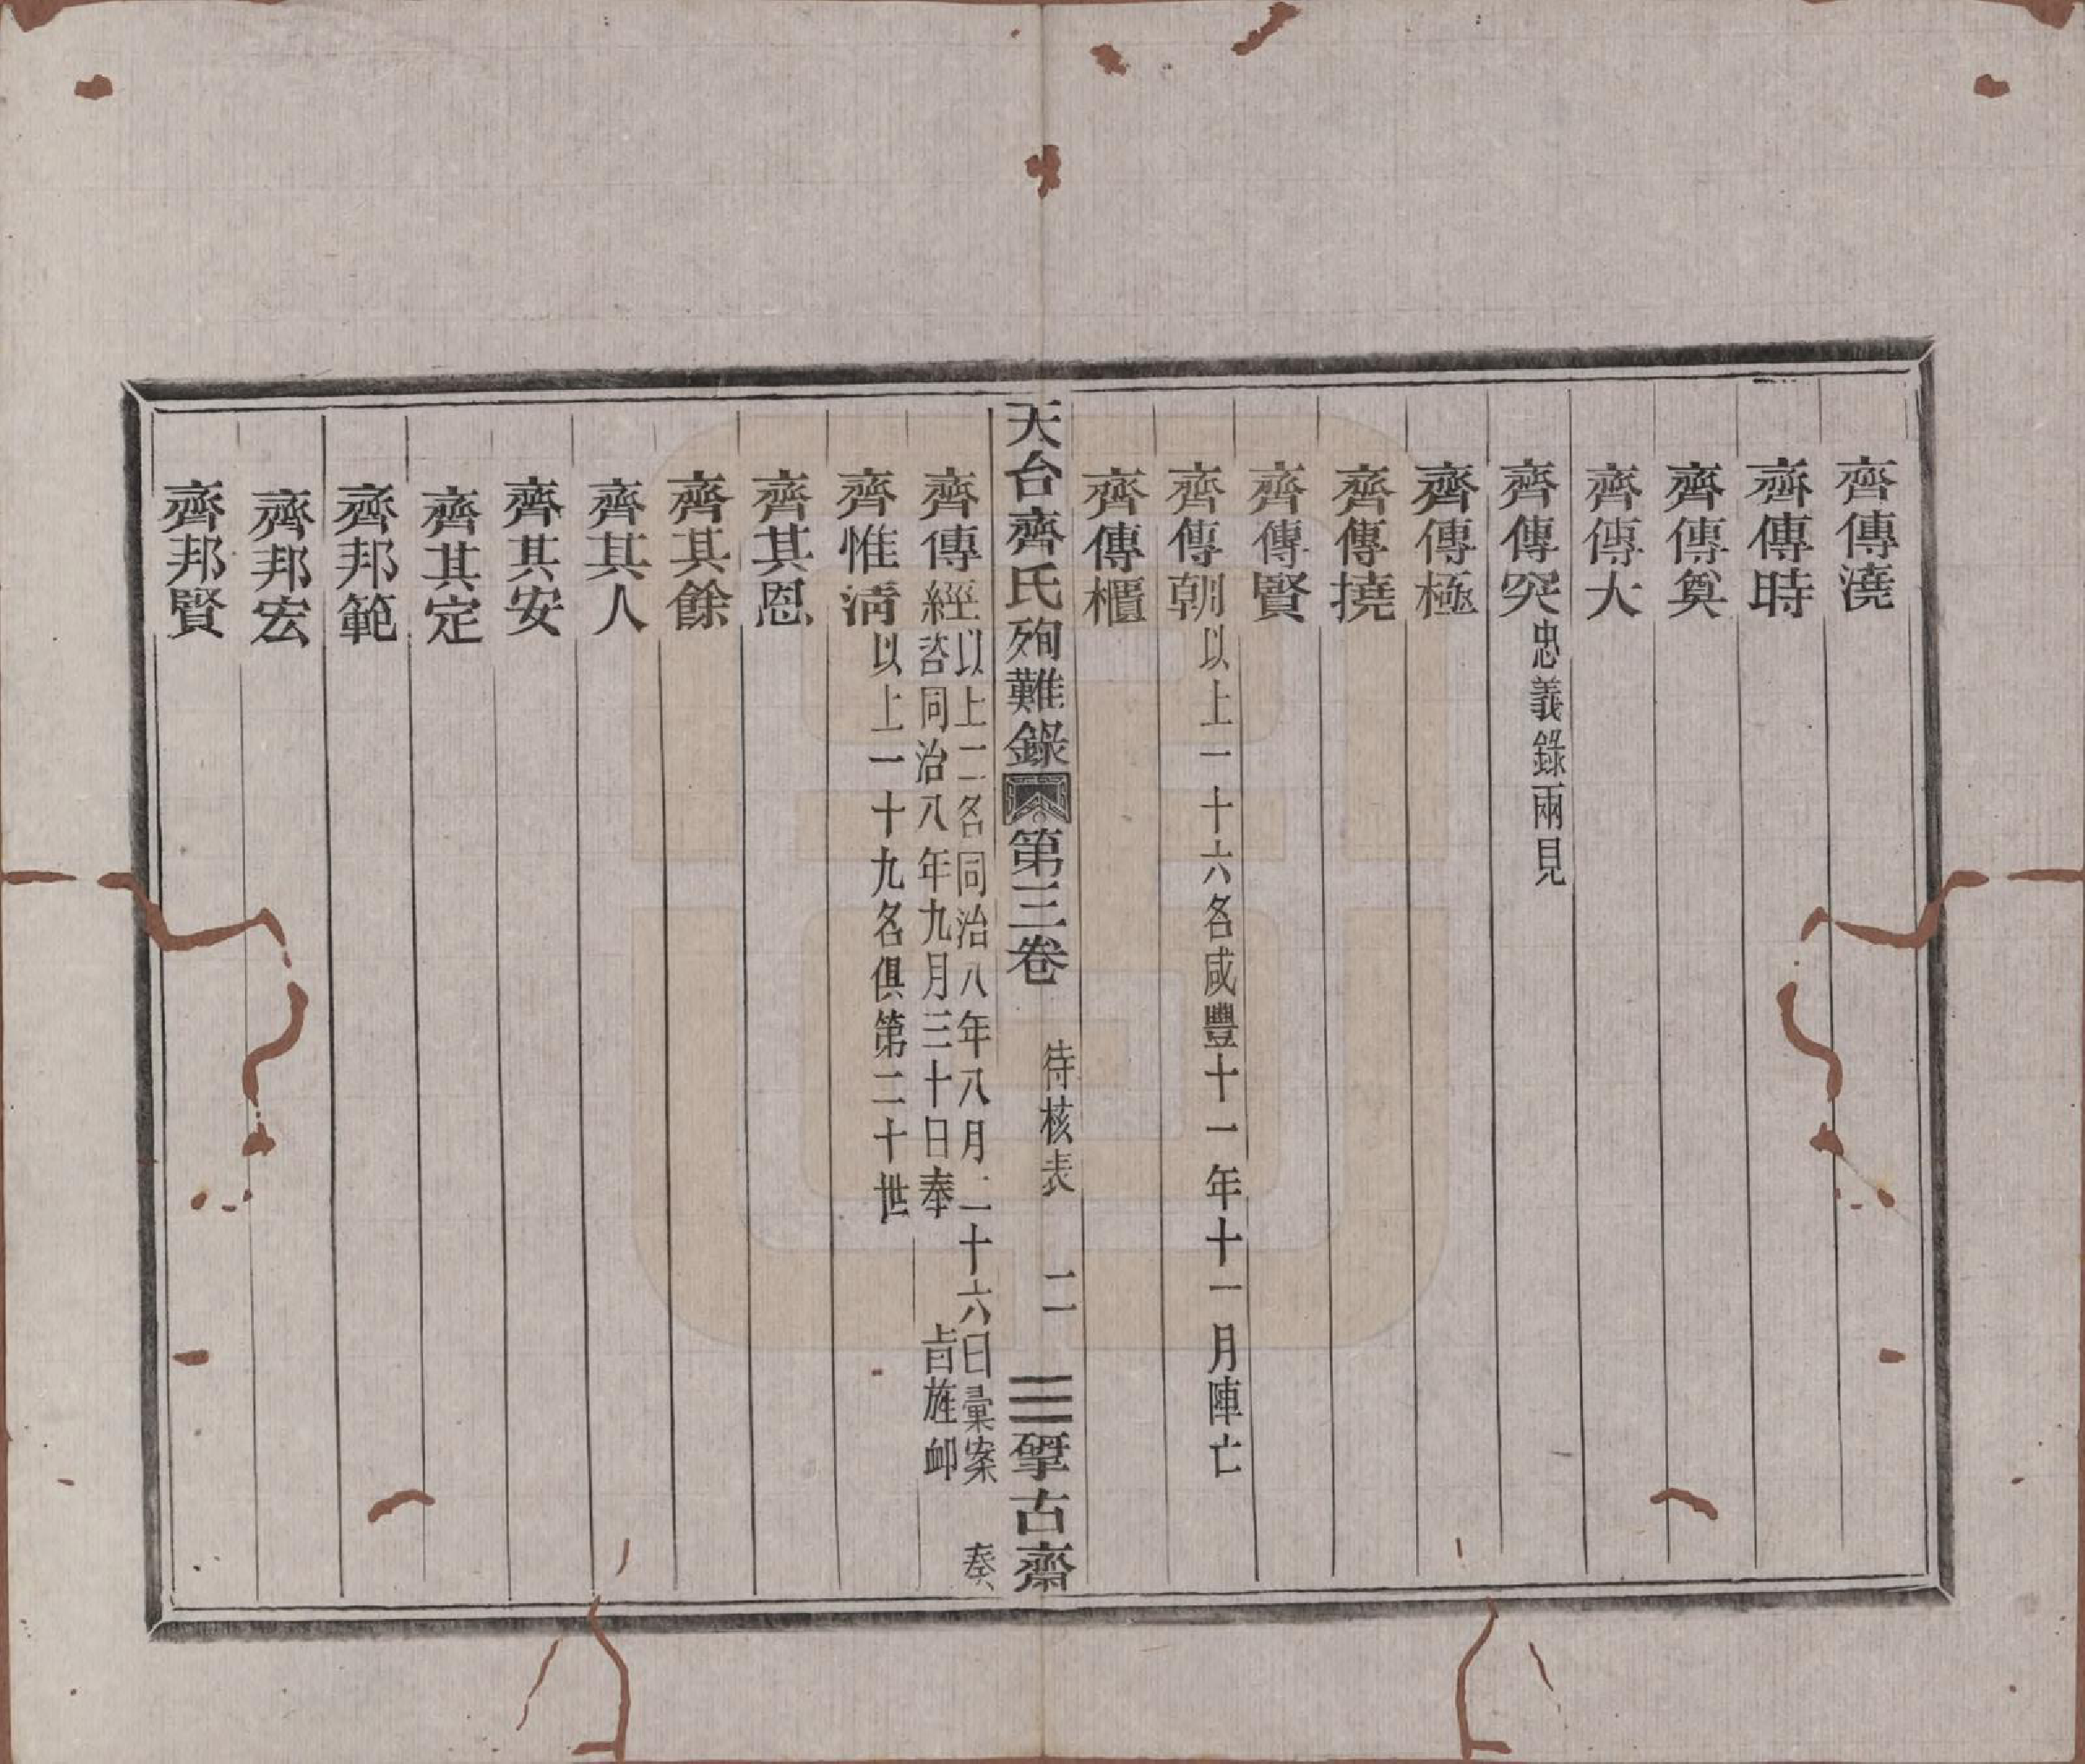 齊傳澆
齊傳時
齊傳奠
齊傳大
齊傳突忠義錄兩見
齊傳極
齊傳撓
齊傳賢
齊傳朝以上一十六名咸豐十一年十一月陣亡
齊傳櫃
天台齊氏殉難錄 第三卷 待核表 二 揅古齋
齊傳經以上二名同治八年八月二十六日彙案 奏
咨同治八年九月三十日奉 旨旌卹
齊惟清以上一十九名俱第二十世
齊其恩
齊其餘
齊其人
齊其安
齊其定
齊邦範
齊邦宏
齊邦賢